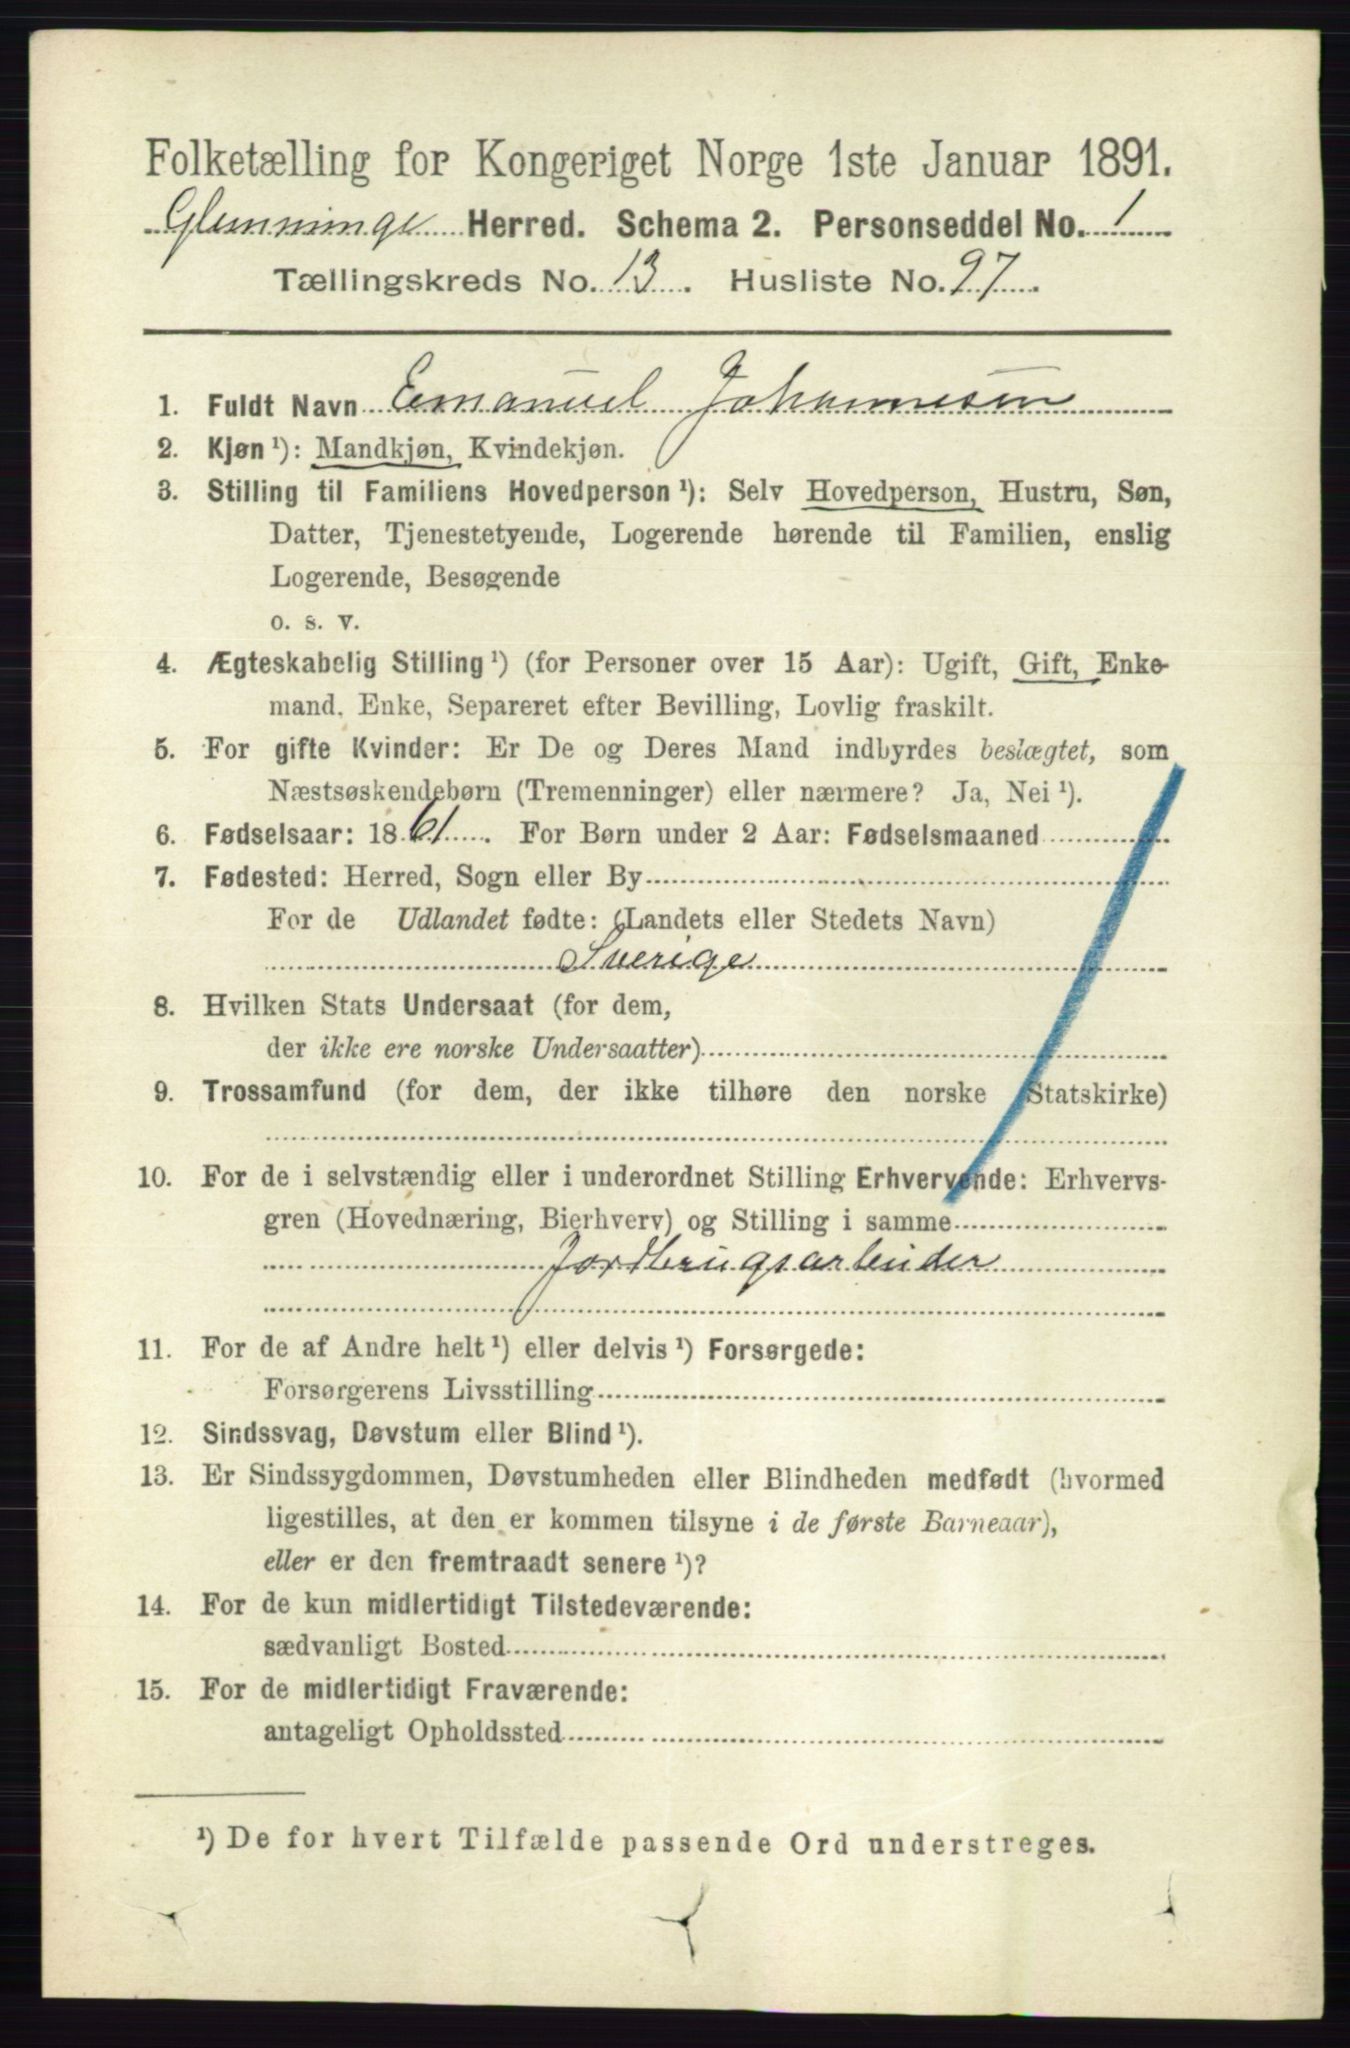 Folketælling for Kongeriget Norge 1ste Januar 1891.
Glemminge Herred. Schema 2. Personseddel No. 1
Tællingskreds No. 13. Husliste No. 97.
1. Fuldt Navn Emanuel Johannesen
2. Kjøn ¹): Mandkjøn, Kvindekjøn.
3. Stilling til Familiens Hovedperson ¹): Selv Hovedperson, Hustru, Søn,
Datter, Tjenestetyende, Logerende hørende til Familien, enslig
Logerende, Besøgende
o. s. v.
4. Ægteskabelig Stilling ¹) (for Personer over 15 Aar): Ugift, Gift, Enke-
mand, Enke, Separeret efter Bevilling, Lovlig fraskilt.
5. For gifte Kvinder: Er De og Deres Mand indbyrdes beslægtet, som
Næstsøskendebørn (Tremenninger) eller nærmere? Ja, Nei ¹).
6. Fødselsaar: 1861. For Børn under 2 Aar: Fødselsmaaned
7. Fødested: Herred, Sogn eller By
For de Udlandet fødte: (Landets eller Stedets Navn)
Sverige
8. Hvilken Stats Undersaat (for dem,
der ikke ere norske Undersaatter)
9. Trossamfund (for dem, der ikke tilhøre den norske Statskirke)
10. For de i selvstændig eller i underordnet Stilling Erhvervende: Erhvervs-
gren (Hovednæring, Bierhverv) og Stilling i samme
Jordbrugsarbeider
11. For de af Andre helt ¹) eller delvis ¹) Forsørgede:
Forsørgerens Livsstilling
12. Sindssvag, Døvstum eller Blind ¹).
13. Er Sindssygdommen, Døvstumheden eller Blindheden medfødt (hvormed
ligestilles, at den er kommen tilsyne i de første Barneaar),
eller er den fremtraadt senere ¹)?
14. For de kun midlertidigt Tilstedeværende:
sædvanligt Bosted
15. For de midlertidigt Fraværende:
antageligt Opholdssted
¹) De for hvert Tilfælde passende Ord understreges.